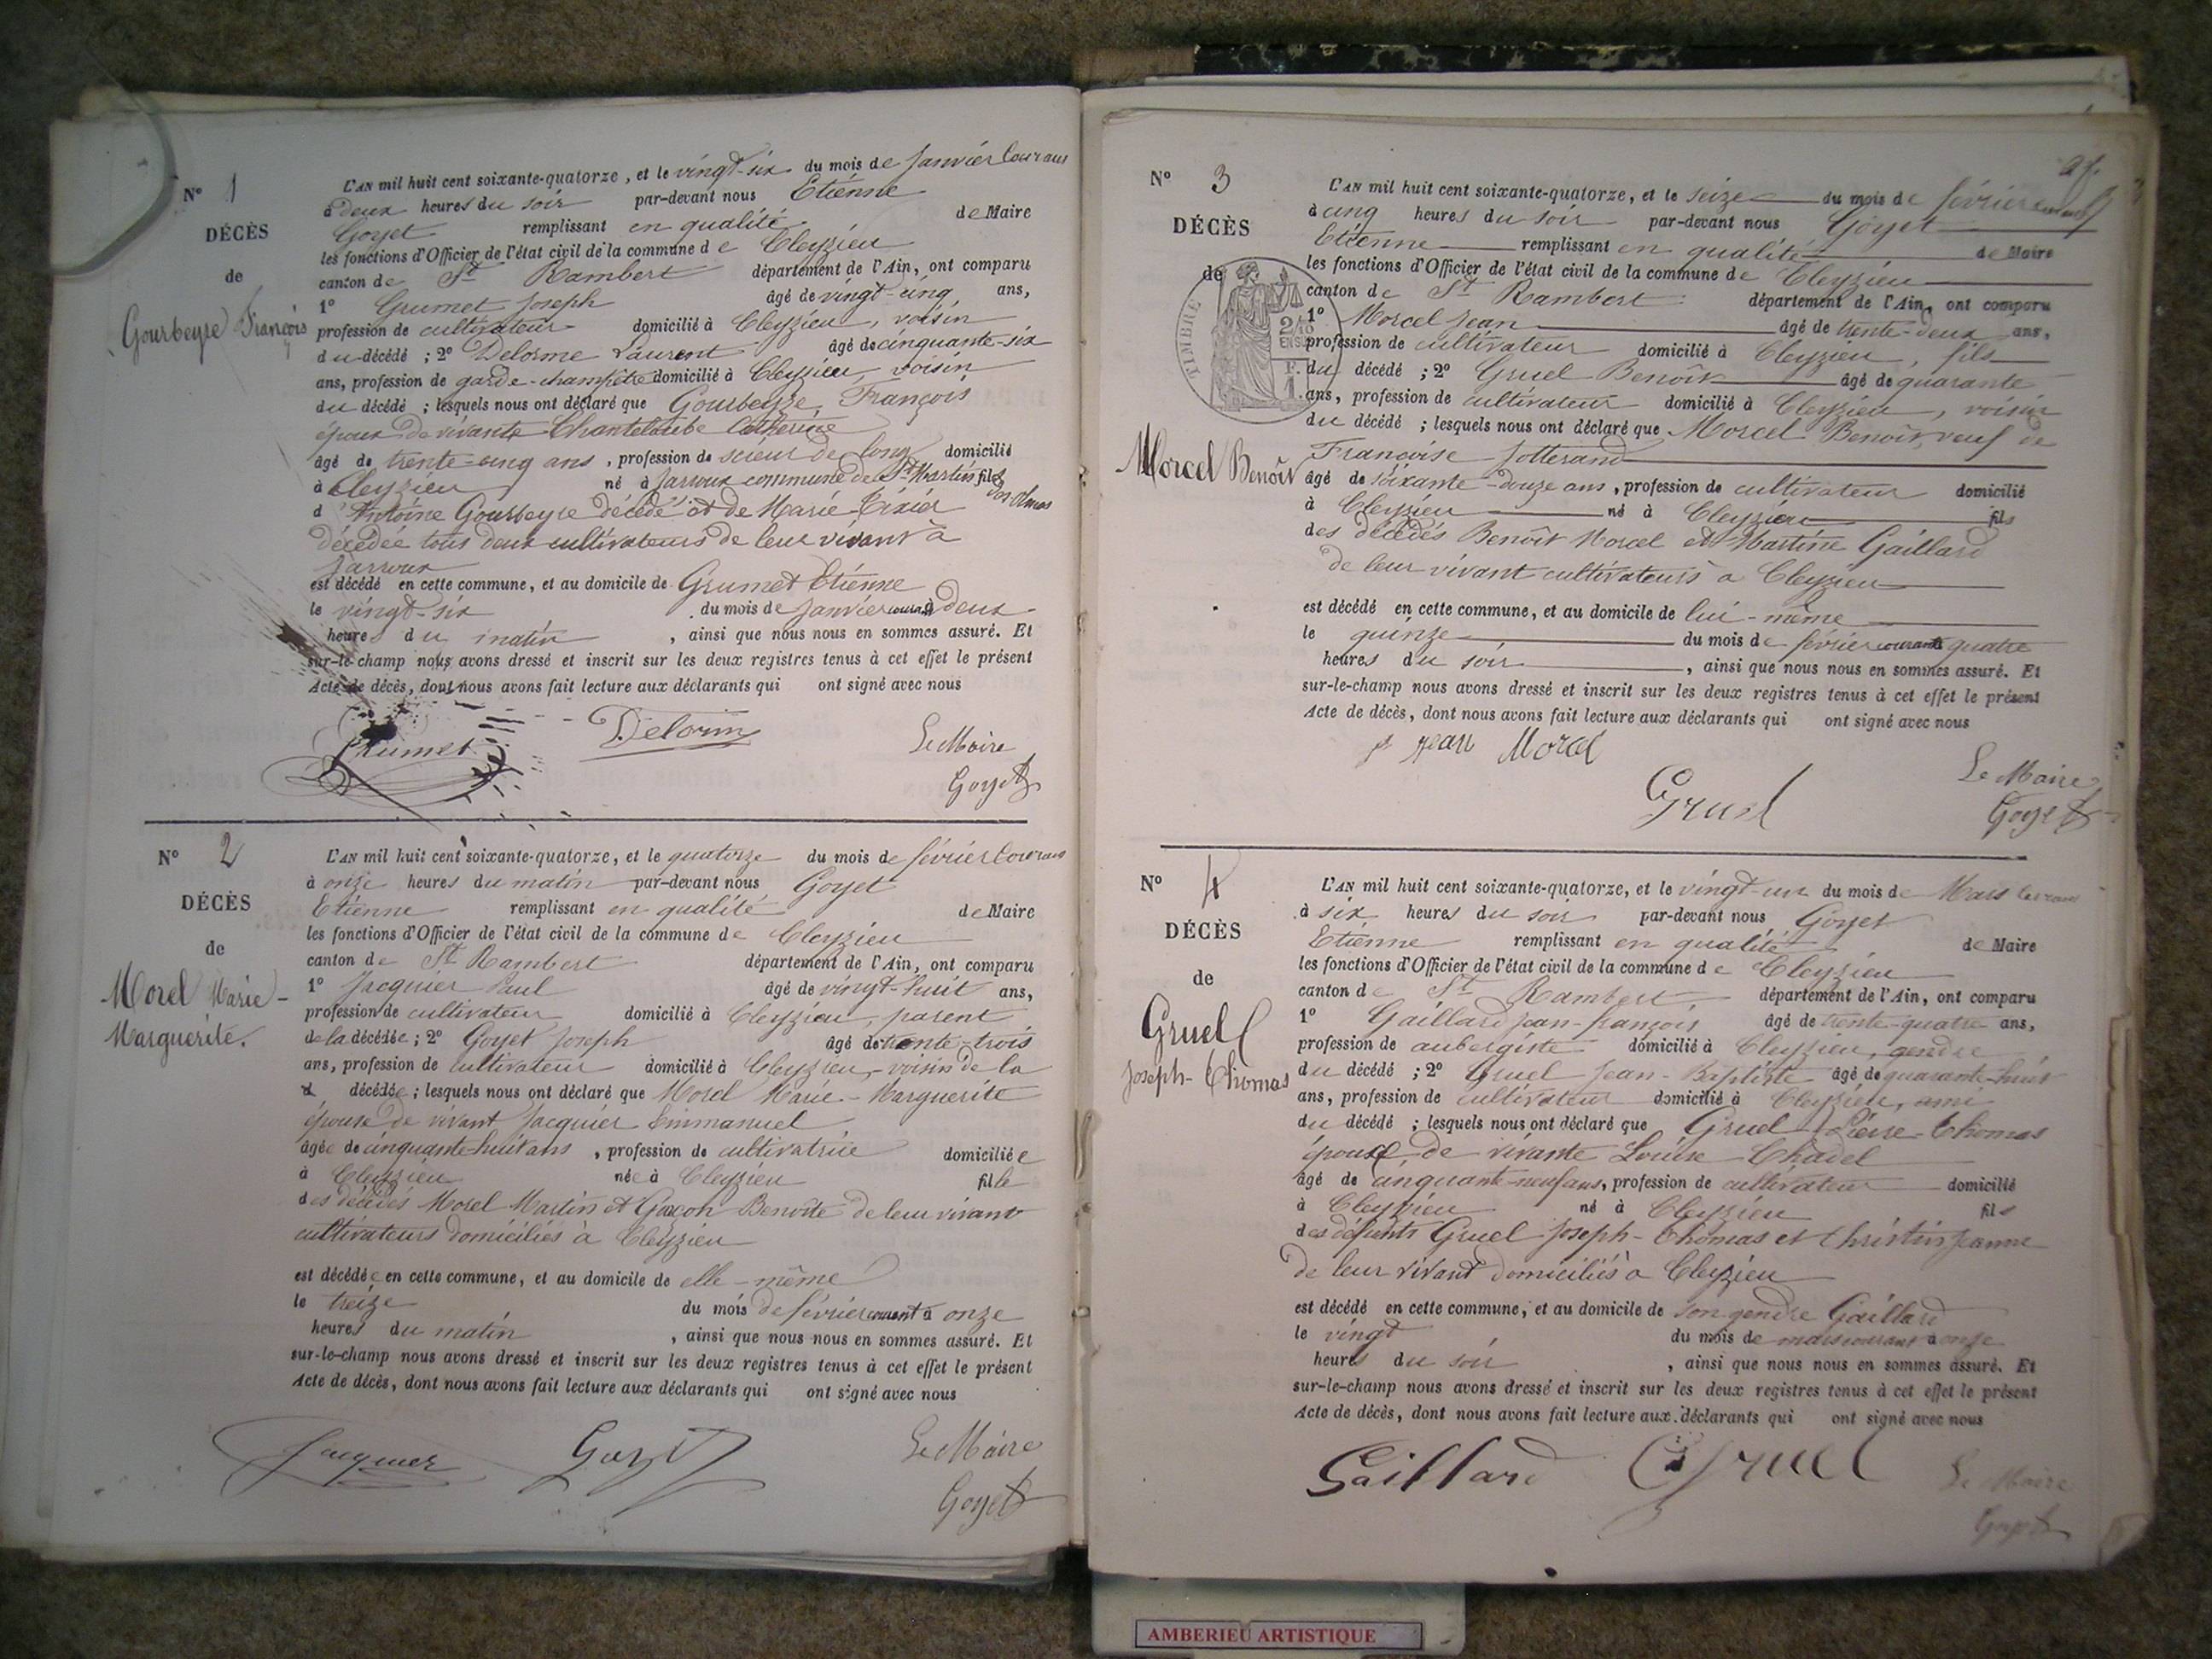 N° 1
DÉCÈS
de
Gourbeyre François
L'AN mil huit cent soixante-quatorze, et le vingt-six du mois de Janvier Courant
à deux heures du soir par-devant nous Etienne
Goyet remplissant en qualité de Maire
les fonctions d'Officier de l'état civil de la commune de Cleyzieu
canton de St Rambert département de l'Ain, ont comparu
1° Grumet Joseph âgé de vingt-cinq ans,
profession de cultivateur domicilié à Cleyzieu, voisin
du décédé ; 2° Delorme Laurent âgé de cinquante-six
ans, profession de garde-champêtre domicilié à Cleyzieu, voisin
du décédé ; lesquels nous ont déclaré que Gourbeyre François
époux de vivante Chanteloube Catherine
âgé de trente-cinq ans, profession de scieur de long domicilié
à Cleyzieu né à Jarroux commune de St Martin fils
des Olmes
d'Antoine Gourbeyre décédé et de Marie Tixier
décédée tous deux cultivateurs de leur vivant à
Jarroux
est décédé en cette commune, et au domicile de Grumet Etienne
le vingt-six du mois de Janvier courant à deux
heures du matin, ainsi que nous nous en sommes assuré. Et
sur-le-champ nous avons dressé et inscrit sur les deux registres tenus à cet effet le présent
Acte de décès, dont nous avons fait lecture aux déclarants qui ont signé avec nous
Grumet Delorm Le Maire
Goyet
N° 2
DÉCÈS
de
Morel Marie-
Marguerite.
L'AN mil huit cent soixante-quatorze, et le quatorze du mois de février Courant
à onze heures du matin par-devant nous Goyet
Etienne remplissant en qualité de Maire
les fonctions d'Officier de l'état civil de la commune de Cleyzieu
canton de St Rambert département de l'Ain, ont comparu
1° Jacquier Paul âgé de vingt-huit ans,
profession de cultivateur domicilié à Cleyzieu, parent
de la décédée ; 2° Goyet Joseph âgé de trente-trois
ans, profession de cultivateur domicilié à Cleyzieu, voisin de la
décédée ; lesquels nous ont déclaré que Morel Marie-Marguerite
épouse de vivant Jacquier Emmanuel
âgée de cinquante-huit ans, profession de cultivatrice domiciliée
à Cleyzieu née à Cleyzieu fille
des décédés Morel Martin et Gacon Benoite de leur vivant
cultivateurs domiciliés à Cleyzieu
est décédée en cette commune, et au domicile de elle-même
le treize du mois de février courant à onze
heures du matin, ainsi que nous nous en sommes assuré. Et
sur-le-champ nous avons dressé et inscrit sur les deux registres tenus à cet effet le présent
Acte de décès, dont nous avons fait lecture aux déclarants qui ont signé avec nous
Jacquier Goyet Le Maire
Goyet
N° 3
DÉCÈS
de
TIMBRE
2/10
EN SUS
F. 1.
Morcel Benoît
L'AN mil huit cent soixante-quatorze, et le seize du mois de février courant
à cinq heures du soir par-devant nous Goyet
Etienne remplissant en qualité de Maire
les fonctions d'Officier de l'état civil de la commune de Cleyzieu
canton de St Rambert département de l'Ain, ont comparu
1° Morcel Jean âgé de trente-deux ans,
profession de cultivateur domicilié à Cleyzieu, fils
du décédé ; 2° Gruel Benoît âgé de quarante
ans, profession de cultivateur domicilié à Cleyzieu, voisin
du décédé ; lesquels nous ont déclaré que Morcel Benoît, veuf de
Françoise Jotterand
âgé de soixante-douze ans, profession de cultivateur domicilié
à Cleyzieu né à Cleyzieu fils
des décédés Benoît Morcel et Martine Gaillard
de leur vivant cultivateurs à Cleyzieu
est décédé en cette commune, et au domicile de lui-même
le quinze du mois de février courant à quatre
heures du soir, ainsi que nous nous en sommes assuré. Et
sur-le-champ nous avons dressé et inscrit sur les deux registres tenus à cet effet le présent
Acte de décès, dont nous avons fait lecture aux déclarants qui ont signé avec nous
Jean Morcel
Gruel Le Maire
Goyet
N° 4
DÉCÈS
de
Gruel
Joseph-Thomas
L'AN mil huit cent soixante-quatorze, et le vingt-un du mois de Mars Courant
à six heures du soir par-devant nous Goyet
Etienne remplissant en qualité de Maire
les fonctions d'Officier de l'état civil de la commune de Cleyzieu
canton de St Rambert département de l'Ain, ont comparu
1° Gaillard Jean-françois âgé de trente-quatre ans,
profession de aubergiste domicilié à Cleyzieu, gendre
du décédé ; 2° Gruel Jean-Baptiste âgé de quarante-huit
ans, profession de cultivateur domicilié à Cleyzieu, ami
du décédé ; lesquels nous ont déclaré que Gruel Pierre-Thomas
époux de vivante Louise Chadel
âgé de cinquante-neuf ans, profession de cultivateur domicilié
à Cleyzieu né à Cleyzieu fils
des défunts Gruel Joseph-Thomas et Christin Jeanne
de leur vivant domiciliés à Cleyzieu
est décédé en cette commune, et au domicile de son gendre Gaillard
le vingt du mois de mars courant à onze
heures du soir, ainsi que nous nous en sommes assuré. Et
sur-le-champ nous avons dressé et inscrit sur les deux registres tenus à cet effet le présent
Acte de décès, dont nous avons fait lecture aux déclarants qui ont signé avec nous
Gaillard Gruel Le Maire
Goyet
AMBERIEU ARTISTIQUE